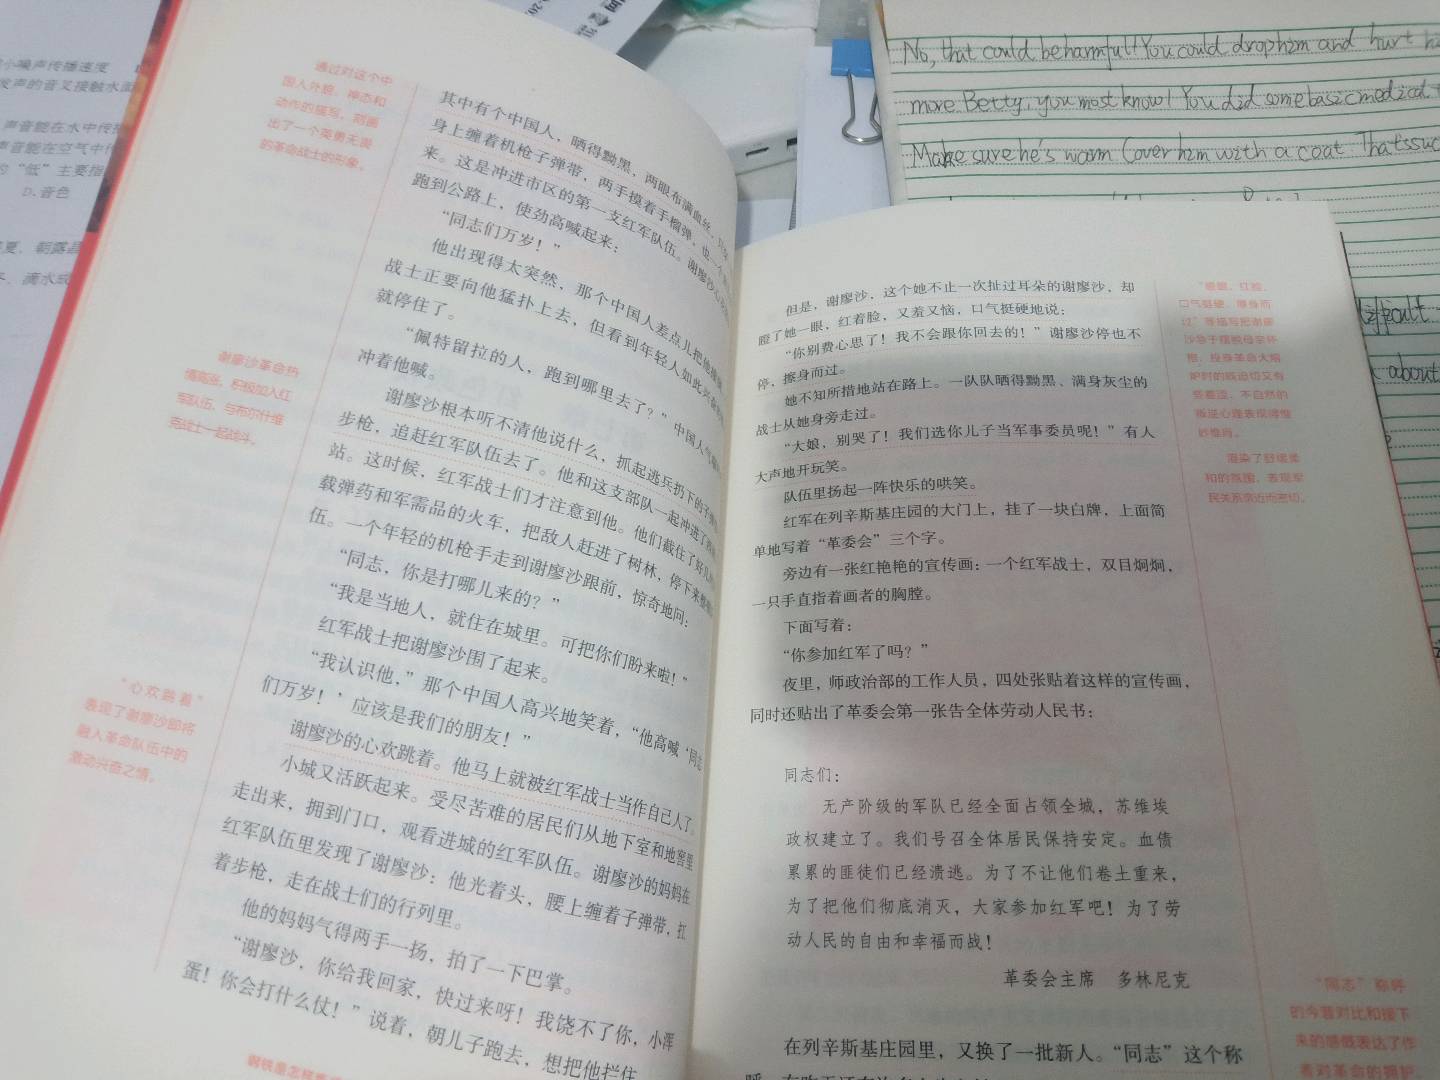 小噪声传播速度
发声的音又接触水面
声音能在水中传播
声音能在空气中传
的“低”主要指
D.音色
夏、朝露昙
滴水成
通过对这个中
国人外貌、神态和
动作的描写，刻画
出了一个英勇无畏
的革命战士的形象。
谢廖沙革命热
情高涨，积极加入红
军队伍，与布尔什维
克战士一起战斗。
“心欢跳着”
表现了谢廖沙即将
融入革命队伍中的
激动兴奋之情。
其中有个中国人，晒得黝黑，两眼布满血丝，
身上缠着机枪子弹带，两手摸着手榴弹，也一个
来。这是冲进市区的第一支红军队伍。谢廖沙
跑到公路上，使劲高喊起来：
“同志们万岁！”
他出现得太突然，那个中国人差点儿把他
战士正要向他猛扑上去，但看到年轻人如此兴奋
就停住了。
“佩特留拉的人，跑到哪里去了？”中国人
冲着他喊。
谢廖沙根本听不清他说什么，抓起逃兵扔下的子弹
步枪，追赶红军队伍去了。他和这支部队一起冲进了
站。这时候，红军战士们才注意到他。他们截住了好几
载弹药和军需品的火车，把敌人赶进了树林，停下来
伍。一个年轻的机枪手走到谢廖沙跟前，惊奇地问：
“同志，你是打哪儿来的？”
“我是当地人，就住在城里。可把你们盼来啦！”
红军战士把谢廖沙围了起来。
“我认识他，”那个中国人高兴地笑着，“他高喊‘同志
们万岁！’应该是我们的朋友！”
谢廖沙的心欢跳着。他马上就被红军战士当作自己人了。
小城又活跃起来。受尽苦难的居民们从地下室和地窖里
走出来，拥到门口，观看进城的红军队伍。谢廖沙的妈妈在
红军队伍里发现了谢廖沙：他光着头，腰上缠着子弹带，扛
着步枪，走在战士们的行列里。
他的妈妈气得两手一扬，拍了一下巴掌。
“谢廖沙，你给我回家，快过来呀！我饶不了你，小浑
蛋！你会打什么仗！”说着，朝儿子跑去，想把他拦住
钢铁是怎样
但是，谢廖沙，这个她不止一次扯过耳朵的谢廖沙，却
瞪了她一眼，红着脸，又羞又恼，口气挺硬地说：
“你别费心思了！我不会跟你回去的！”谢廖沙停也不
停，擦身而过。
她不知所措地站在路上。一队队晒得黝黑、满身灰尘的
战士从她身旁走过。
“大娘，别哭了！我们选你儿子当军事委员呢！”有人
大声地开玩笑。
队伍里扬起一阵快乐的哄笑。
红军在列辛斯基庄园的大门上，挂了一块白牌，上面简
单地写着“革委会”三个字。
旁边有一张红艳艳的宣传画：一个红军战士，双目炯炯，
一只手直指着画者的胸膛。
下面写着：
“你参加红军了吗？”
夜里，师政治部的工作人员，四处张贴着这样的宣传画，
同时还贴出了革委会第一张告全体劳动人民书：
同志们：
无产阶级的军队已经全面占领全城，苏维埃
政权建立了。我们号召全体居民保持安定。血债
累累的匪徒们已经溃逃。为了不让他们卷土重来，
为了把他们彻底消灭，大家参加红军吧！为了劳
动人民的自由和幸福而战！
革委会主席 多林尼克
在列辛斯基庄园里，又换了一批新人。“同志”这个称
口气挺硬，擦身而
过”等描写把谢廖
沙急于摆脱母亲怀
抱，投身革命大熔
炉时的既迫切又有
些羞涩、不自然的
叛逆心理表现得惟
妙惟肖。
渲染了舒缓柔
和的氛围，表现军
民关系亲近而密切。
“同志”称呼
的今昔对比和接下
来的感慨表达了作
者对革命的拥护
No, that could be harmful! You could drop him and hurt hi
more. Betty, you most know! You did some basic medical
Make sure he's warm. Cover him with a coat. That's suc
about